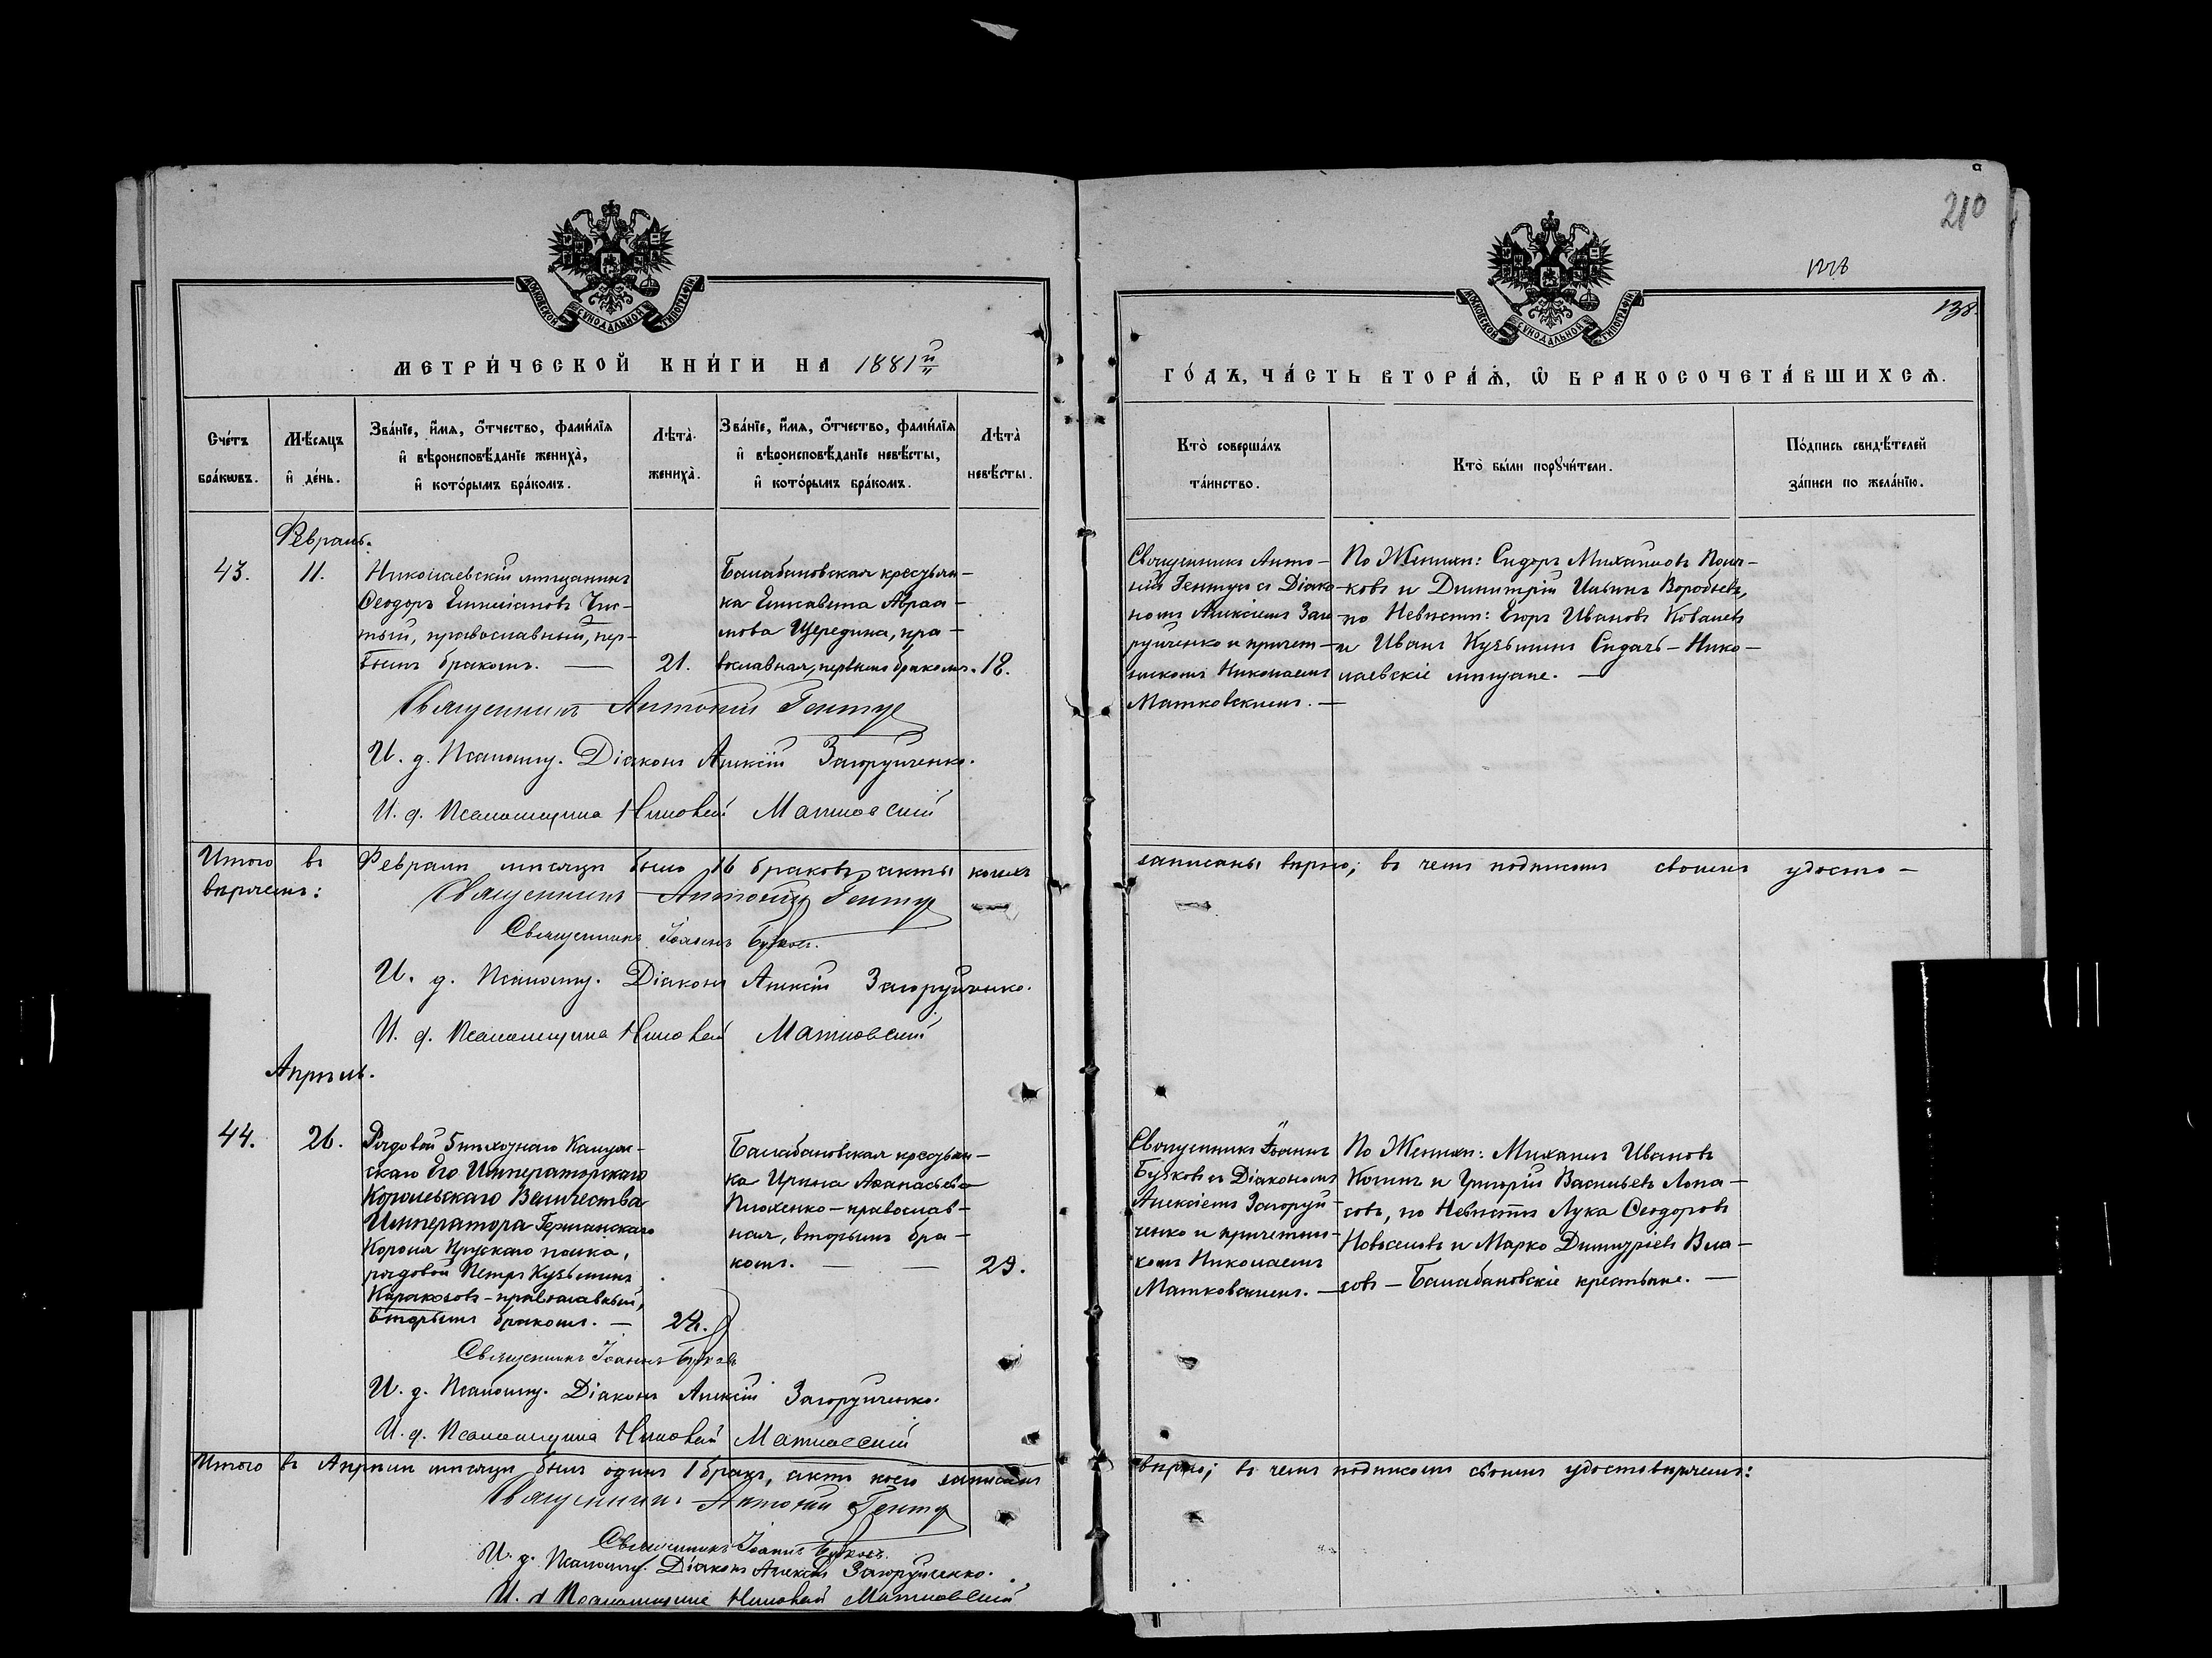 210
1278
138.
МОСКОВСКОЙ СѴНОДАЛЬНОЙ ТИПОГРАФІИ
МОСКОВСКОЙ СѴНОДАЛЬНОЙ ТИПОГРАФІИ
МЕТРИ́ЧЕСКОЙ КНИ́ГИ НА 1881й
Сче́тъ бра́кωвъ.
Мѣ́сяцъ и҆ де́нь.
Зва́нїе, и҆́мѧ, ѻ҆́тчество, фами́лїѧ
и҆ вѣроисповѣ́данїе жениха̀,
и҆ кото́рымъ бра́комъ.
Лѣта̀ жениха̀.
Зва́нїе, и҆́мѧ, ѻ҆́тчество, фами́лїѧ
и҆ вѣроисповѣ́данїе невѣ́сты,
и҆ кото́рымъ бра́комъ.
Лѣта̀ невѣ́сты.
Февраль.
43.
11.
Николаевскій мѣщанинъ
Ѳеодоръ Емиліановъ Чис-
тый, православный, пер-
вымъ бракомъ. —
21.
Балабановская крестьян-
ка Елисавета Авраа-
мова Щередина, пра-
вославная, первымъ бракомъ.
18.
Священникъ Антоній Гентуе
И. д. Псаломщ. Діаконъ Алексій Загоруйченко.
И. д. Псаломщика Николай Матковский
Итого въ Февралѣ мѣсяцѣ было 16 браковъ, акты коихъ
вѣряемъ:
Священникъ Антоній Гентуе
Священникъ Іоаннъ Бузковъ.
И. д. Псаломщ. Діаконъ Алексій Загоруйченко.
И. д. Псаломщика Николай Матковский
Апрѣль.
44.
26.
Рядовой 5 пѣхотнаго Калуж-
скаго Его Императорскаго
Королевскаго Величества
Императора Германскаго
Короля Прускаго полка,
рядовой Петръ Кузьминъ
Каракозовъ – православный,
вторымъ бракомъ. —
24.
Балабановская крестьян-
ка Ирина Аѳанасьева
Плохенко – православ-
ная, вторымъ бра-
комъ. — —
29.
Священникъ Іоаннъ Бузковъ
И. д. Псаломщ. Діаконъ Алексій Загоруйченко.
И. д. Псаломщика Николай Матковский
Итого въ Апрѣлѣ мѣсяцѣ былъ одинъ 1 бракъ, актъ коего записанъ
Священникъ Антоній Гентуе
Священникъ Іоаннъ Бузковъ.
И. д. Псаломщ. Діаконъ Алексій Загоруйченко.
И. д. Псаломщика Николай Матковский
ГО́ДЪ, ЧА́СТЬ ВТОРА́Ѧ, Ѽ БРАКОСОЧЕТА́ВШИХСѦ.
Кто̀ соверша́лъ
та́инство.
Кто̀ бы́ли порꙋчи́тели.
По́дпись свидѣ́телей
за́писи по жела́нїю.
Священникъ Анто-
ній Гентуе съ Діако-
номъ Алексіемъ Заго-
руйченко и причет-
никомъ Николаемъ
Матковскимъ. —
По Женихѣ: Сидоръ Михаиловъ Поля-
ковъ и Димитрій Ильинъ Воробьевъ,
по Невѣстѣ: Егоръ Ивановъ Ковалевъ
и Иванъ Кузьминъ Сидачъ – Нико-
лаевскіе мѣщане. —
записаны вѣрно; въ чемъ подписомъ своимъ удосто-
Священникъ Іоаннъ
Бузковъ съ Діакономъ
Алексіемъ Загоруй-
ченко и причетни-
комъ Николаемъ
Матковскимъ. —
По Женихѣ: Михаилъ Ивановъ
Котинъ и Григорій Васильевъ Лопа-
совъ, по Невѣстѣ Лука Ѳеодоровъ
Новоселовъ и Марко Димитріевъ Вла-
совъ – Балабановскіе крестьяне. —
вѣрно; въ чемъ подписомъ своимъ удостовѣряемъ: